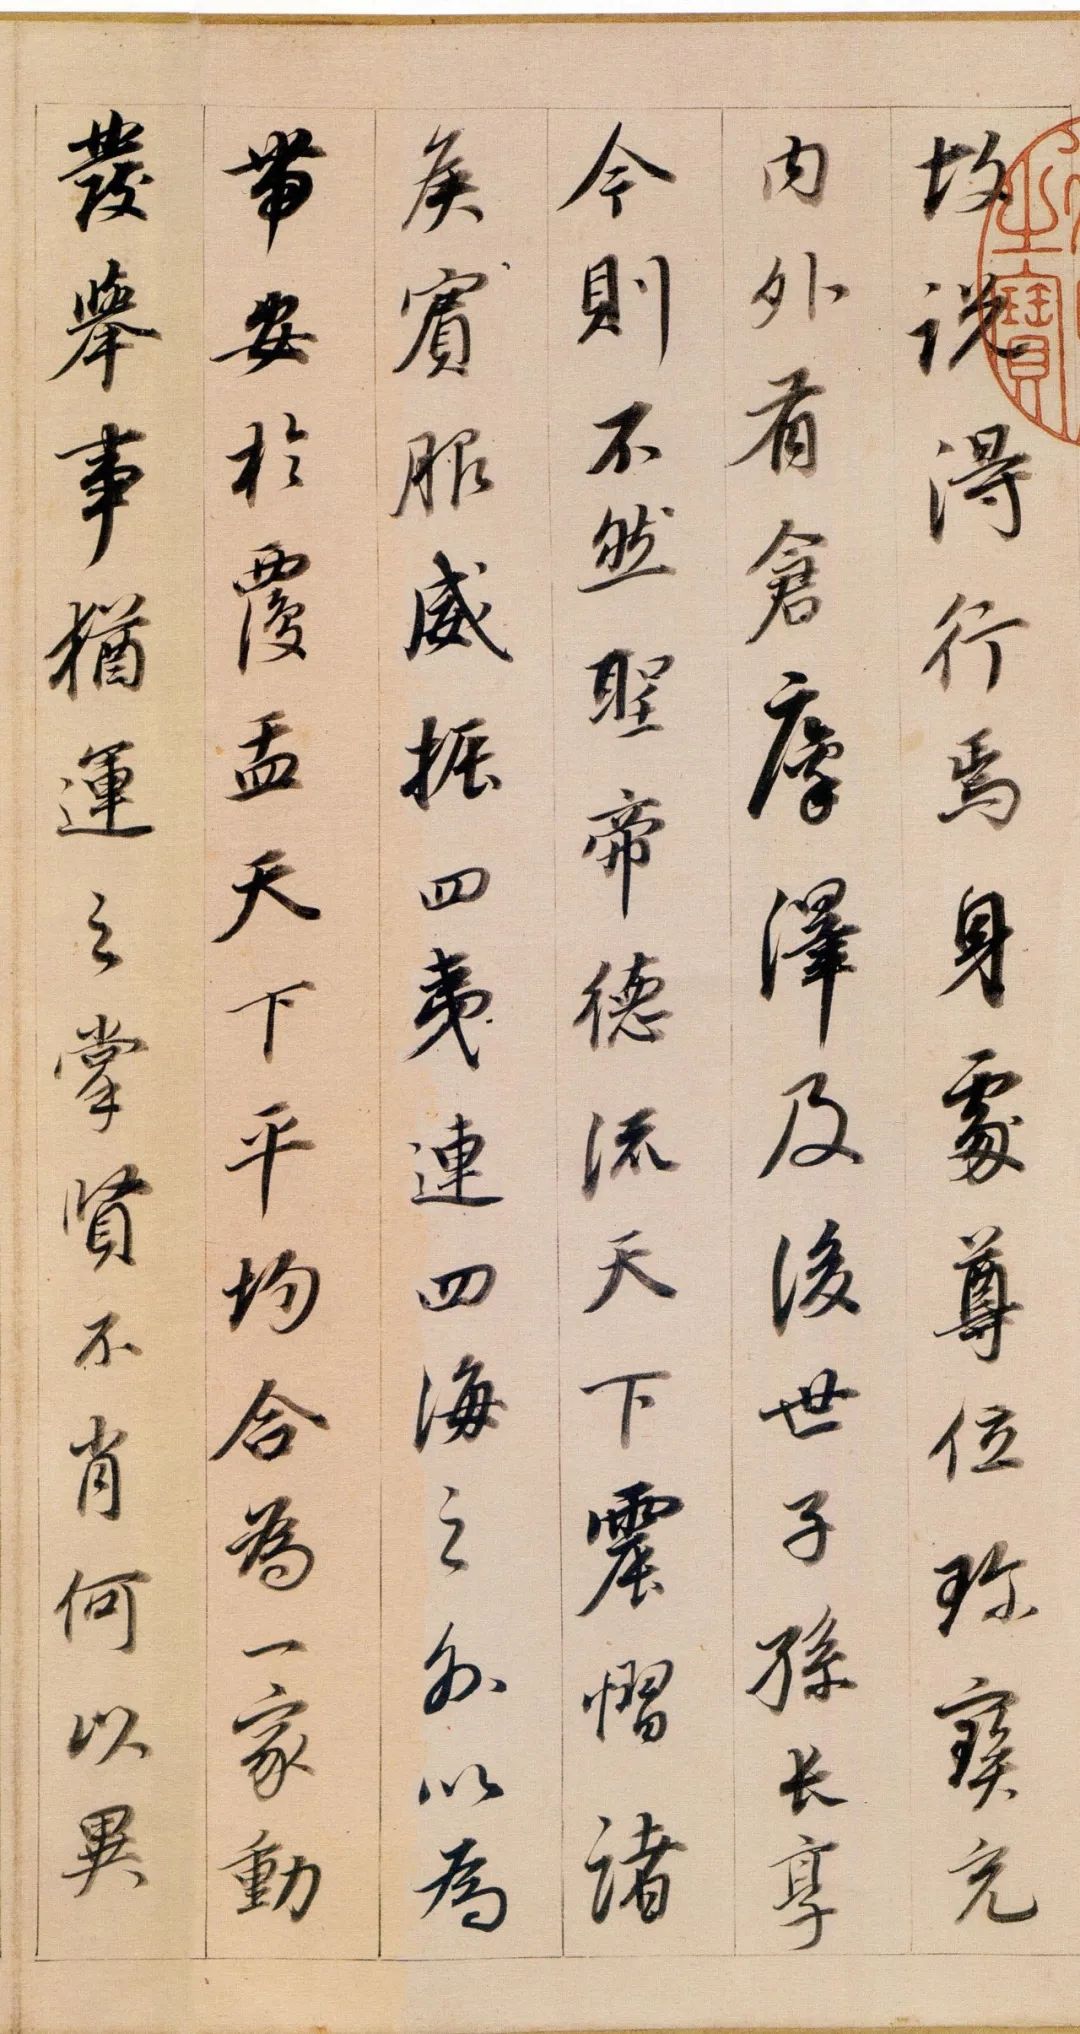 故說得行焉身處尊位珍寳充
内外有倉廩澤及後世子孫長享
今則不然聖帝德流天下震慴諸
矦賓服威振四夷連四海之外以為
帶安於覆盂天下平均合為一家動
發舉事猶運之掌賢不肖何以異